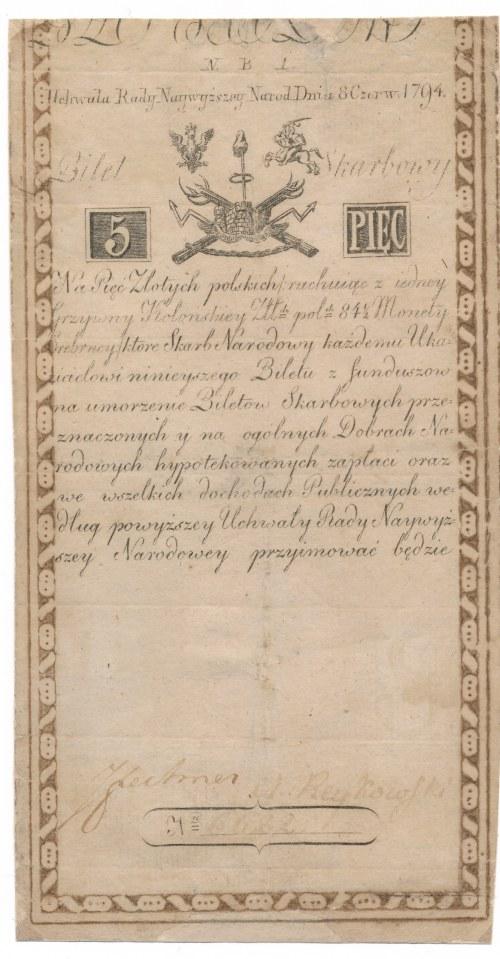 N B 1
Uchwała Rady Naywyższey Narod. Dnia 8 Czerw. 1794.
Bilet Skarbowy
5 PIĘC
Na Pięć Złotych polskich /: rachuiąc z iedney
Grzywny Kolonskiey Złł: pol: 84½ Monety
srebrney :/ ktore Skarb Narodowy każdemu Uka-
zicielowi ninieyszego Biletu z funduszow
na umorzenie Biletow Skarbowych prze-
znaczonych y na ogólnych Dobrach Na-
rodowych hypotekowanych zapłaci oraz
we wszelkich dochodach Publicznych we-
dług powyższey Uchwały Rady Naywyż-
szey Narodowey przyimować będzie
A. Reykowski